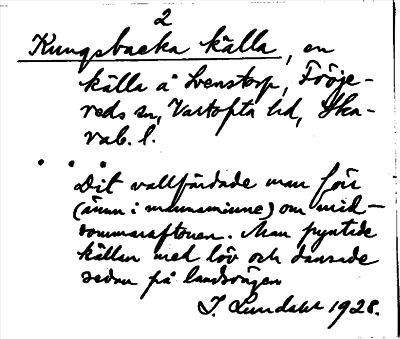 2
Kungsbacka källa, en
källa å Svenstorp, Fröje-
reds sn, Vartofta hd, Ska-
rab. l.
. . .
Dit vallfärdade man förr
(ännu i mannaminne) om mid-
sommaraftonen. Man pyntade
källan med löv och dansade
sedan på landsvägen
J. Lundahl 1928.